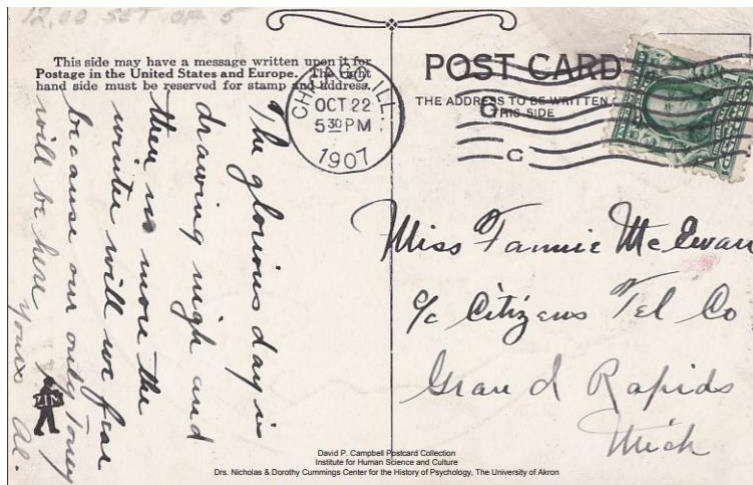 12.00 SET OF 5
This side may have a message written upon it for
Postage in the United States and Europe. The right
hand side must be reserved for stamp and address.
CHICAGO, ILL.
OCT 22
5 30 PM
1907
The glorious day is
drawing nigh and
then no more the
winter will we fear
because our only Toney
will be here
Yours Al.
POST CARD
THE ADDRESS TO BE WRITTEN
THIS SIDE
C
Miss Fannie McEwan
c/o Citizens Tel Co
Grand Rapids
Mich
David P. Campbell Postcard Collection
Institute for Human Science and Culture
Drs. Nicholas & Dorothy Cummings Center for the History of Psychology, The University of Akron